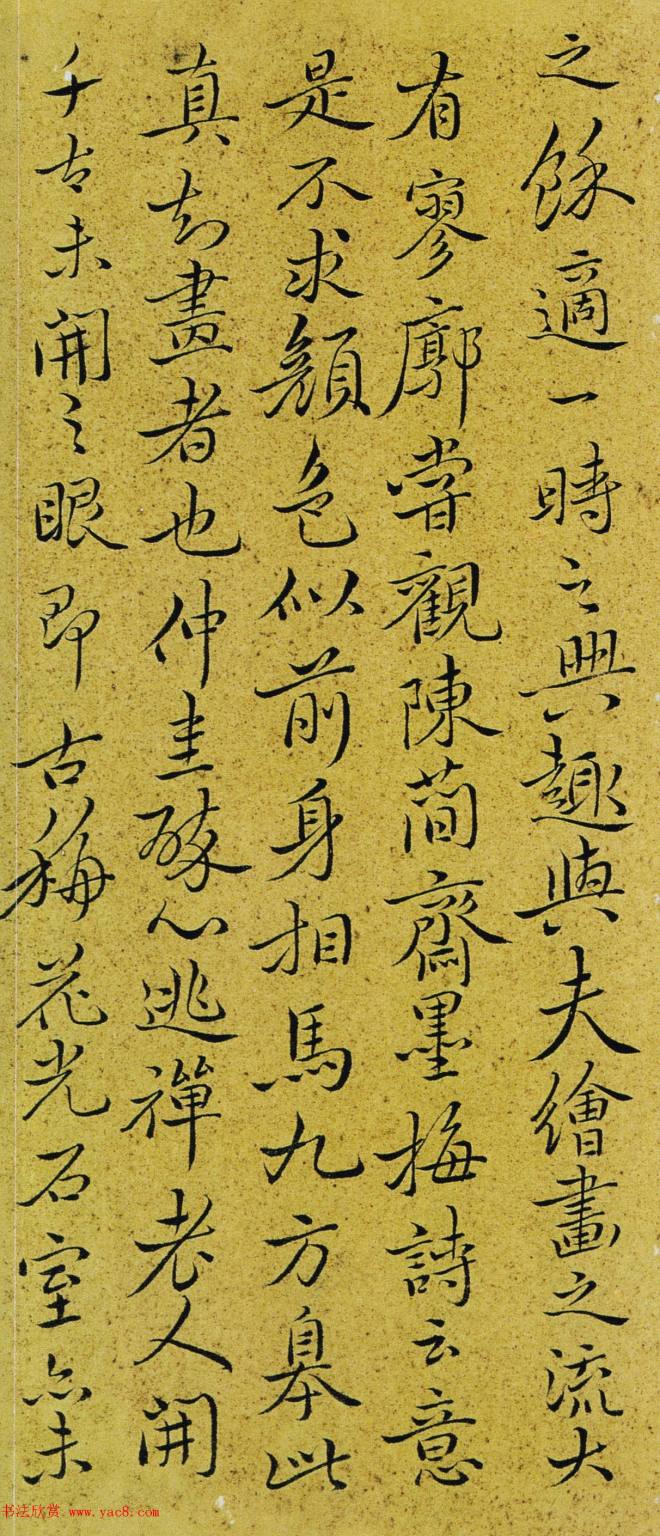 之餘適一時之興趣與夫繪畫之流大
有寥廓嘗觀陳簡齋墨梅詩云意
是不求顏色似前身相馬九方皋此
真知畫者也仲圭醉心逃禪老人開
千古未開之眼即古梅花光石室亦未
书法欣赏.www.yac8.com